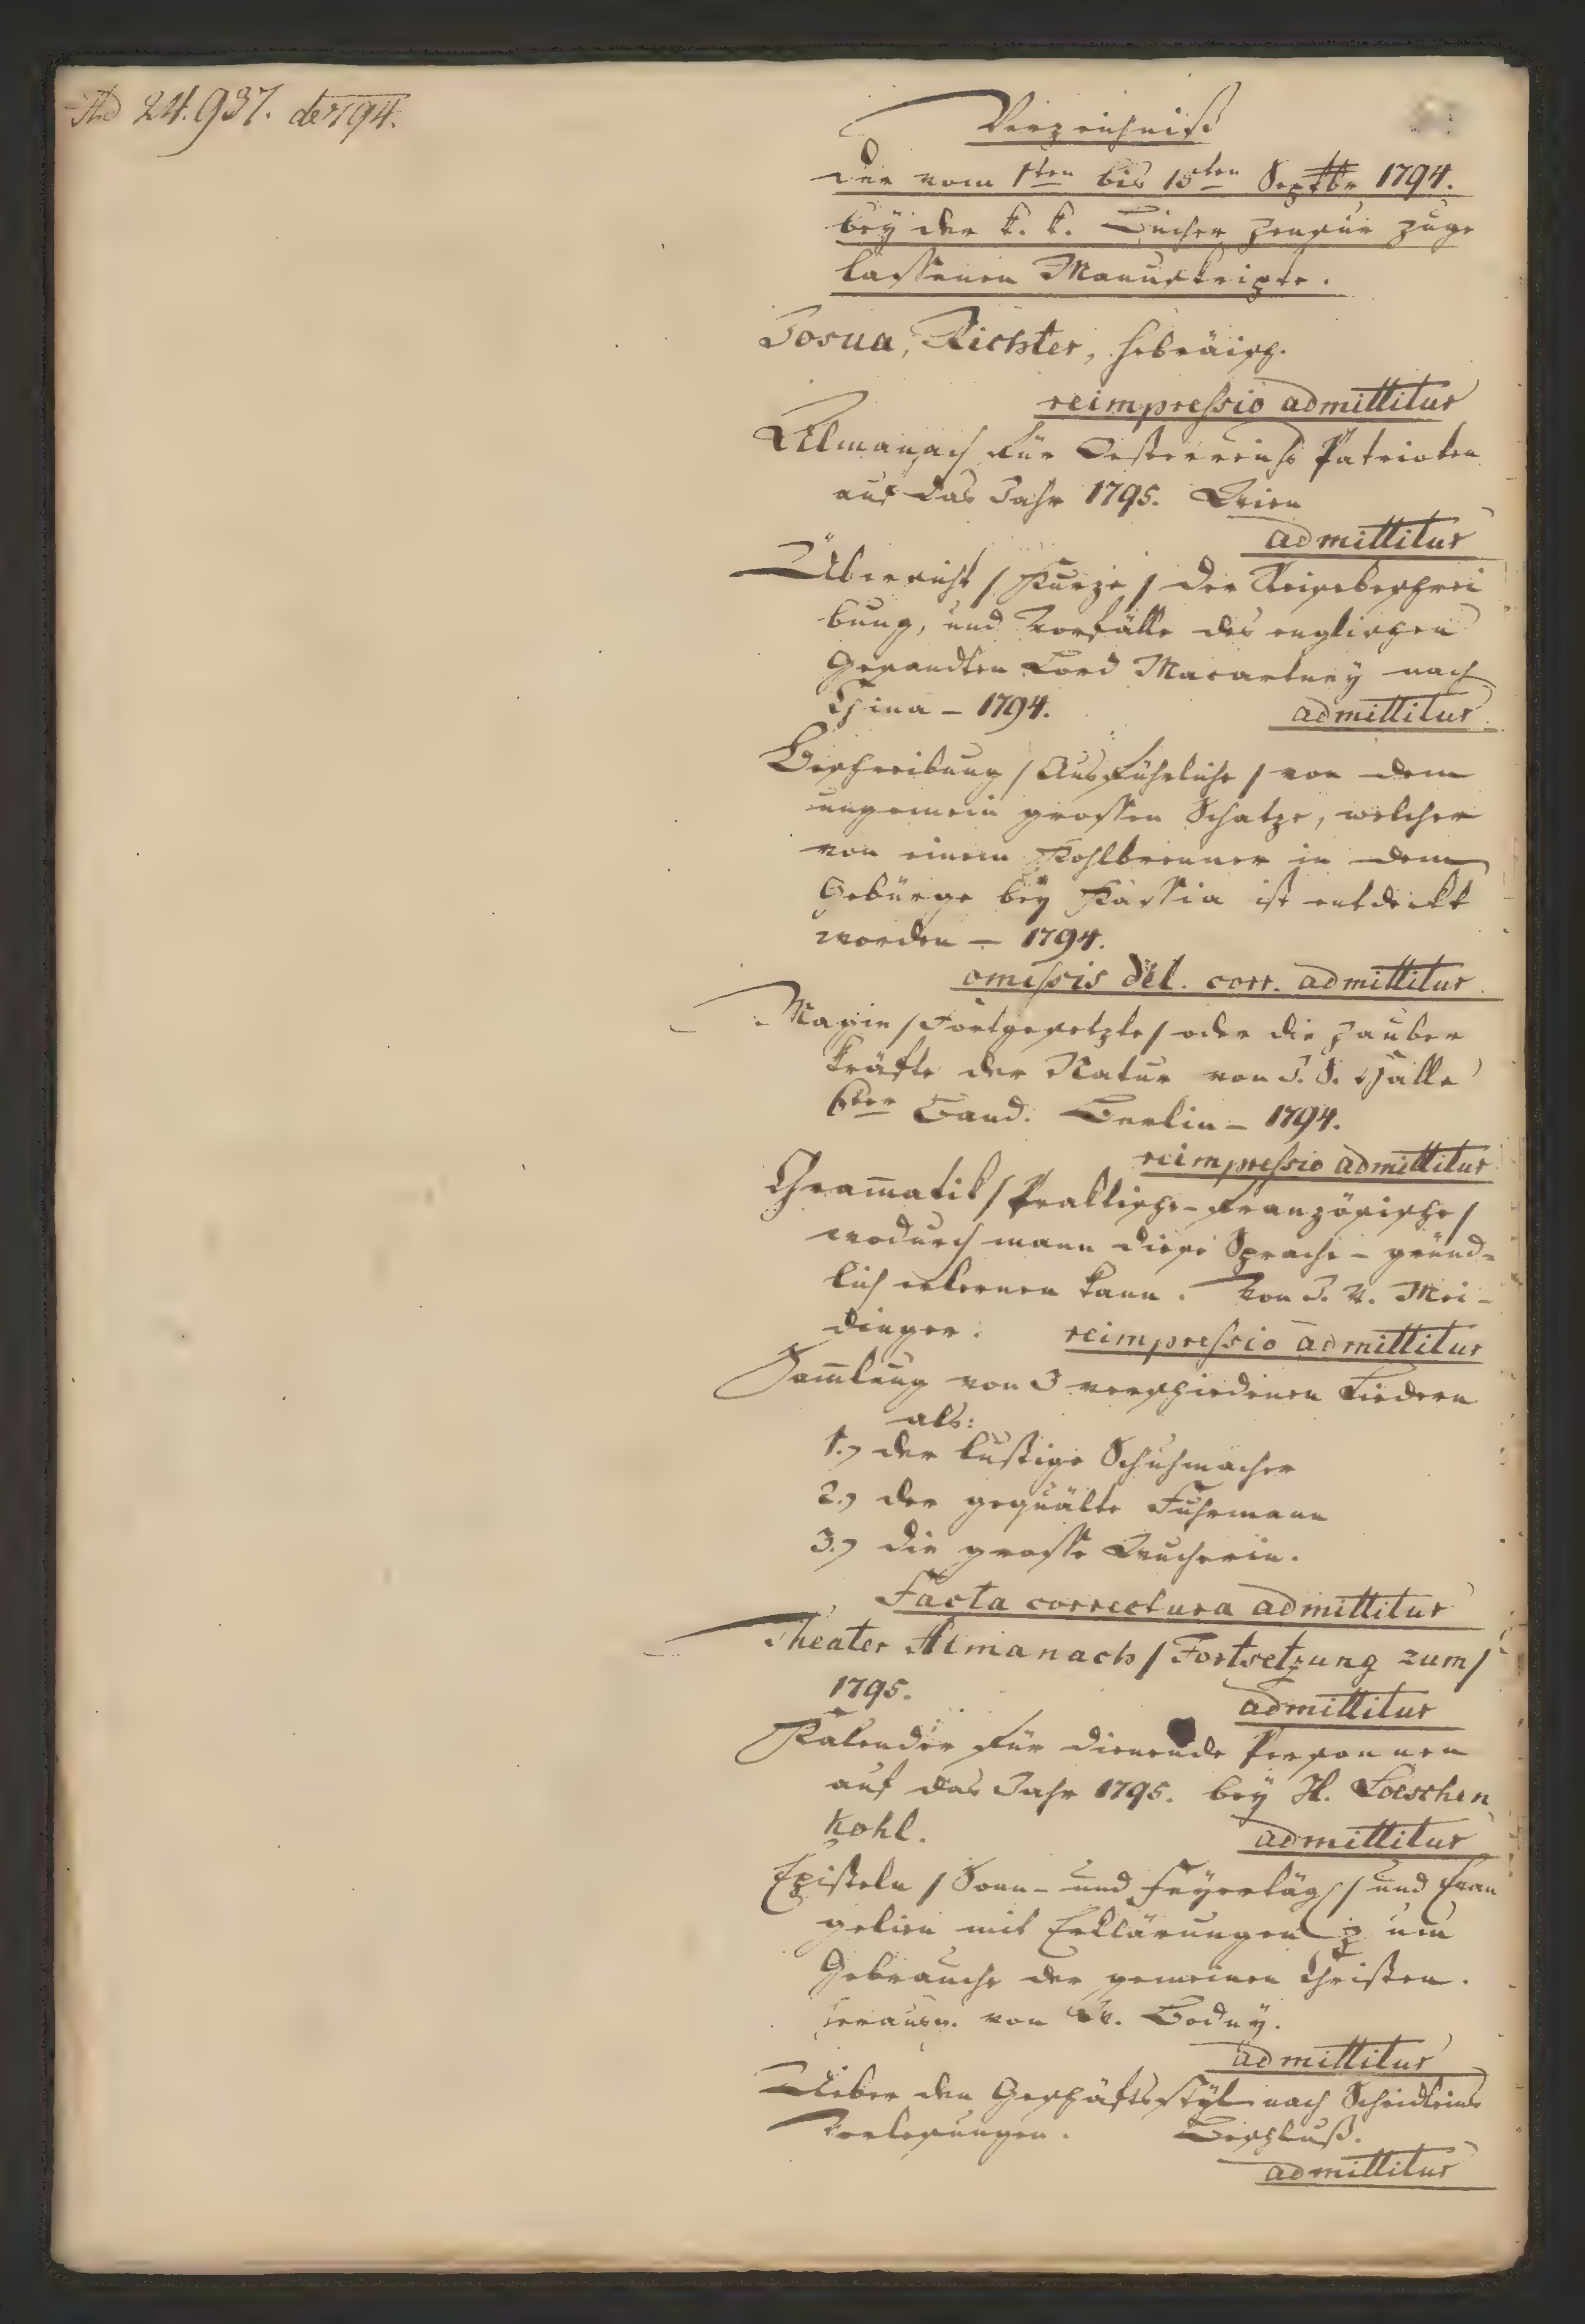 Ad 24.937. de 1794.
Verzeichniß
der vom 1ten bis 15ten Septbr 1794.
bey der k. k. Bücher Zensur zuge
lassenen Manuskripte.
Josua, Richter, hebräisch.
reimpressio admittitur
Allmanach für Oesterreichs Patrioten
auf das Jahr 1795. Wien
admittitur
Übersicht / Kurze / der Reisebeschrei
bung, und Vorfälle des englischen
Gesandten Lord Macartney nach
China – 1794. admittitur
Beschreibung / Ausführliche / von dem
ungemein grossen Schatze, welcher
von einem Kohlbrenner in dem
Gebürge bey Kassia ist entdeckt
worden – 1794.
omissis del. corr. admittitur
Magie / Fortgesetzte / oder die Zauber
kräfte der Natur von J. S. Halle
6ter Band. Berlin – 1794.
reimpressio admittitur
Gram̄atik / Praktische-französische /
wodurch mann diese Sprache – gründ-
lich erlernen kann. Von J. V. Mei-
dinger. reimpressio admittitur
Sam̄lung von 3 verschiedenen Liedern
als:
1.) der lustige Schuhmacher
2.) der gequälte Fuhrmann
3.) die grosse Wucherin.
Facta correctura admittitur
Theater Almanach / Fortsetzung zum /
1795. admittitur
Kalender für dienende Personnen
auf das Jahr 1795. bey H. Loeschen
kohl. admittitur
Episteln / Sonn- und Feyertäg / und Evan
gelien mit Erklärungen zum
Gebrauche der gemeinen Christen.
herausg. von Bodny.
admittitur
Ueber den Geschäftsstyl nach Scheidleins
Vorlesungen. Beschluß.
admittitur